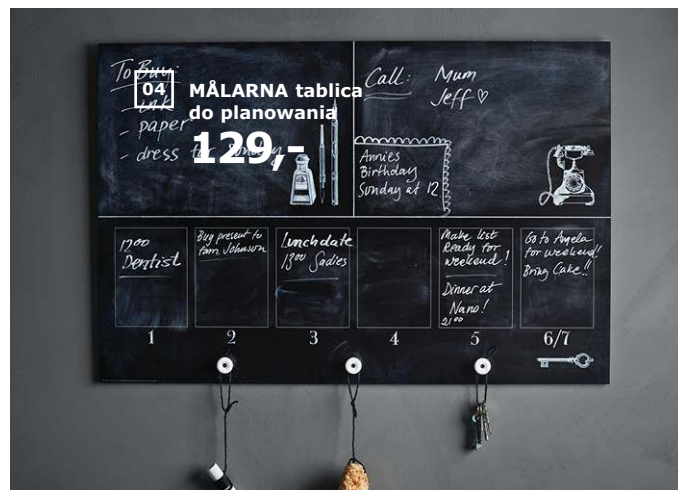 To Buy:
- ink
- paper
- dress for Sunday
04
MÅLARNA tablica
do planowania
129,-
Call: Mum
Jeff ♡
Annies
Birthday
Sunday at 12
12⁰⁰
Dentist
Buy present to
fam. Johnson
Lunchdate
13⁰⁰ Sadies
Make list
Ready for
weekend!
Dinner at
Nano!
21⁰⁰
Go to Angela
for weekend!
Bring Cake!!
1 2 3 4 5 6/7